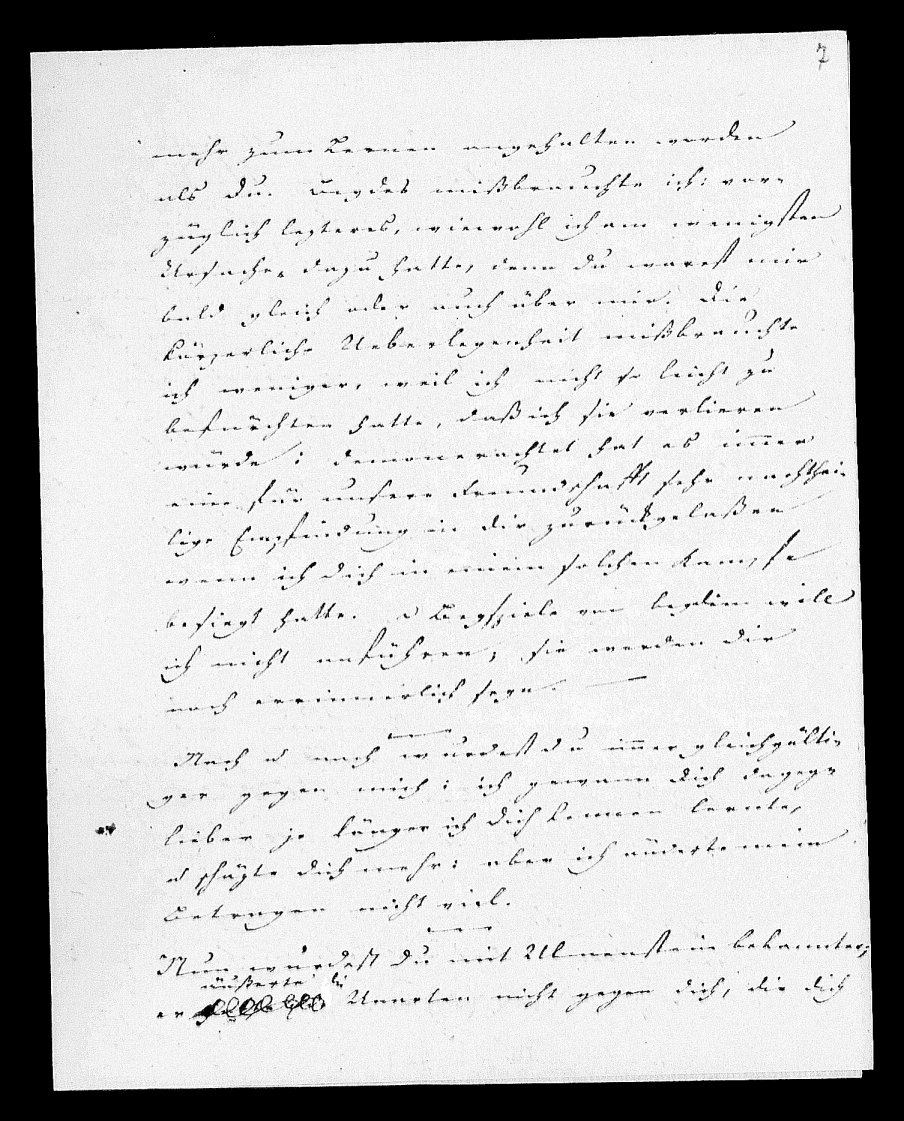 7
mehr zum Lernen angehalten worden
als du. Beydes mißbrauchte ich: vor-
züglich lezteres, wiewohl ich am wenigsten
Ursache dazu hatte, denn du warest mir
bald gleich oder auch über mir. Die
körperliche Ueberlegenheit mißbrauchte
ich weniger, weil ich nicht so leicht zu
befürchten hatte, daß ich sie verlieren
würde: demonerachtet hat es immer
eine für unsere Freundschafft sehr nachthei-
lige Empfindung in dir zurückgelaßen
wenn ich dich in einem solchen Kampfe
besiegt hatte. Beyspiele von beydem will
ich nicht anführen; sie werden dir
noch errinnerlich seyn. —
Nach u nach wurdest du immer gleichgülti-
ger gegen mich: ich gewann dich dagegen
lieber je länger ich dich kennen lernte,
u schäzte dich mehr: aber ich änderte mein
Betragen nicht viel.
Nun wurdest du mit Ulmenstein bekannter,
äußerte die
er Unarten nicht gegen dich, die dich